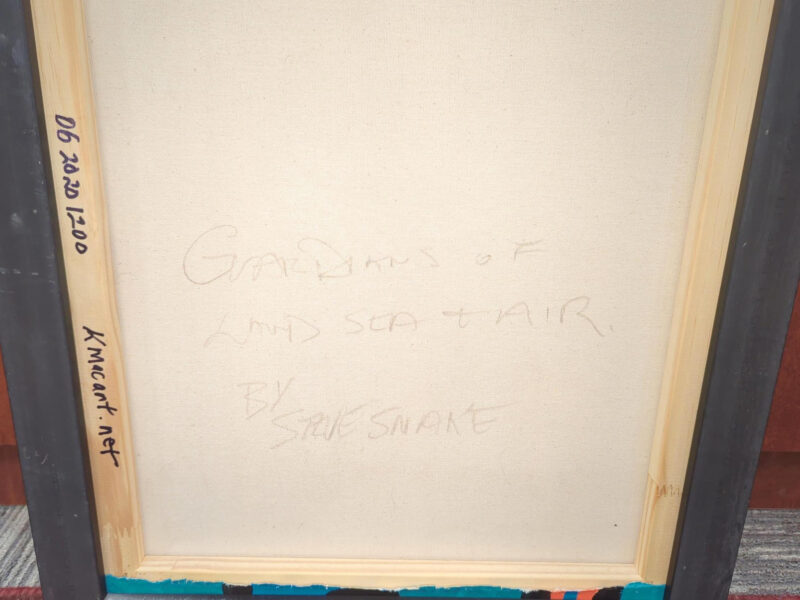 D6 2020 1200
Kmacart.net
GUARDIANS OF
LAND SEA + AIR.
BY
STEVE SNAKE